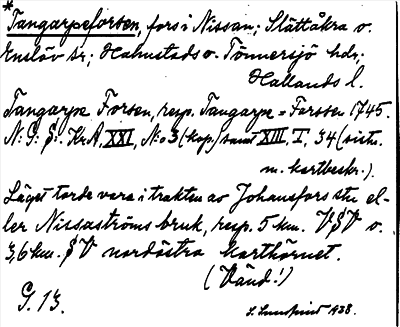 * Tangarpeforsen, fors i Nissan; Slättåkra o.
Enslöv sr; Halmstads o. Tönnersjö hdr;
Hallands l.
Tangarpe Forsen, resp. Tangarpe-Forssen 1745.
N:G: §: Kr.A. XXI, N:o 3 (kop.) samt XIII. I, 34 (sistn.
m. kartbeskr.).
Läget torde vara i trakten av Johansfors stn el-
ler Nissaströms bruk, resp. 5 km. V§V o.
3,6 km. §V nordöstra karthörnet.
(Vänd!)
G. 13.
1938.